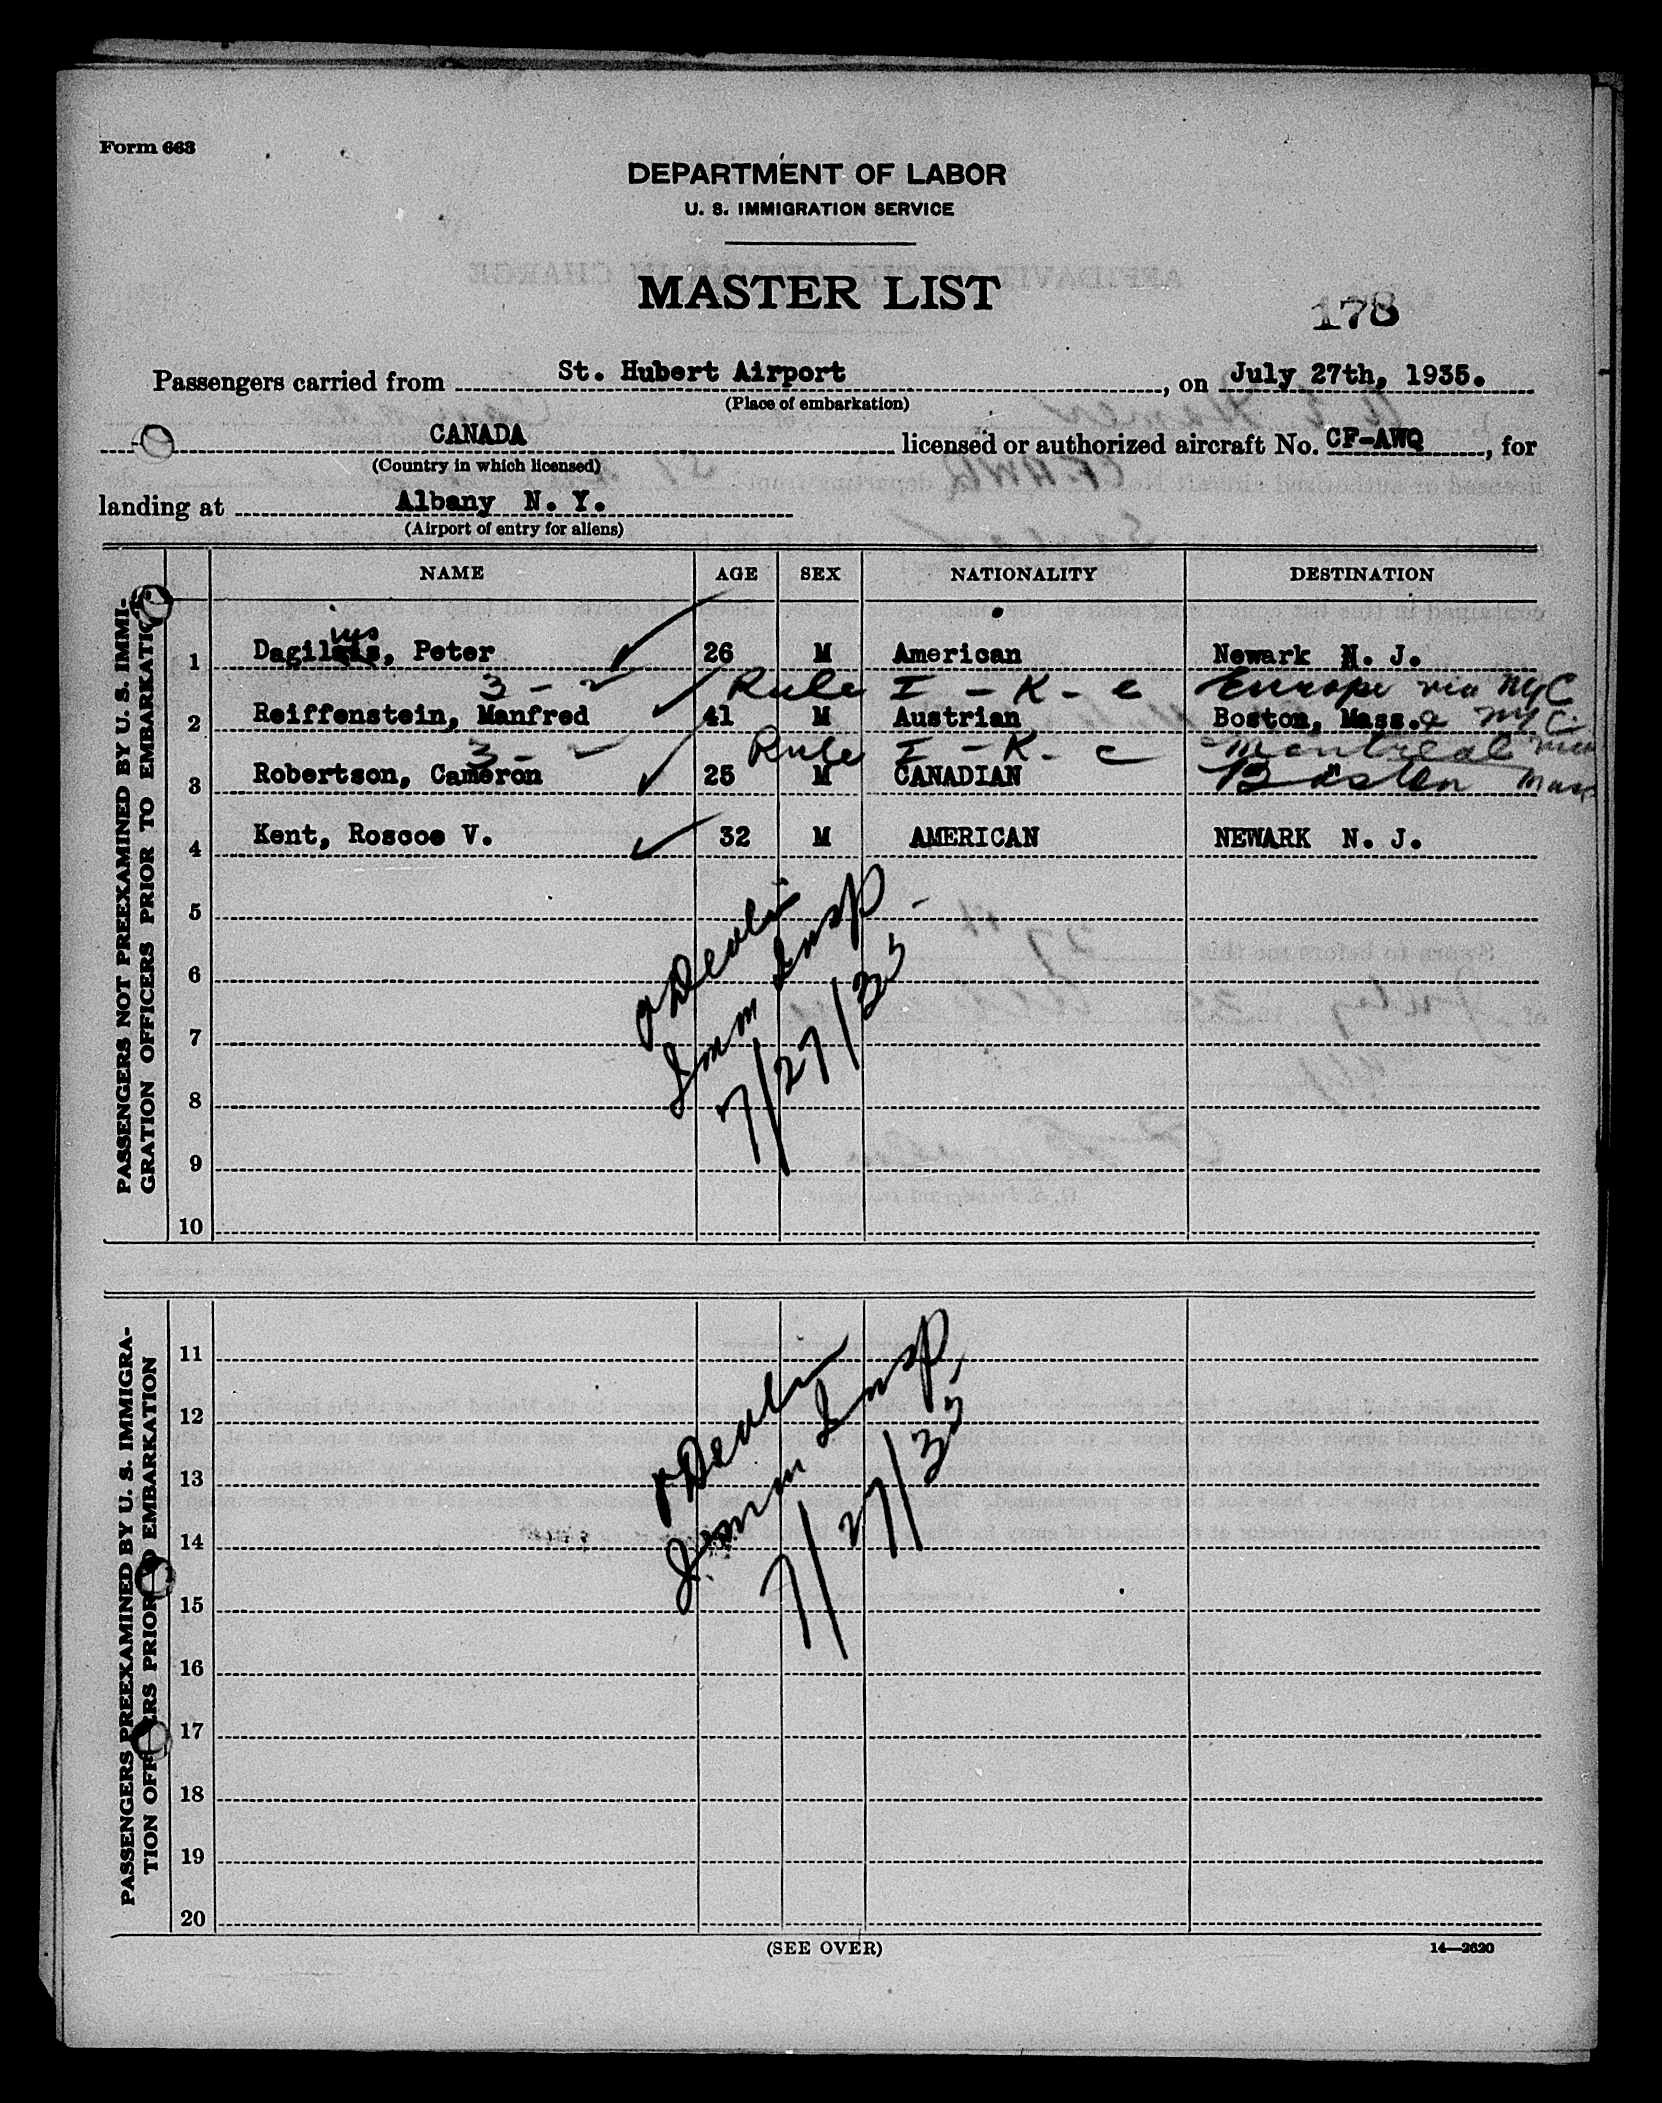 Form 663
DEPARTMENT OF LABOR
U. S. IMMIGRATION SERVICE
MASTER LIST
178
Passengers carried from St. Hubert Airport, on July 27th, 1935.
(Place of embarkation)
CANADA licensed or authorized aircraft No. CF-AWQ, for
(Country in which licensed)
landing at Albany N. Y.
(Airport of entry for aliens)
NAME AGE SEX NATIONALITY DESTINATION
PASSENGERS NOT PREEXAMINED BY U. S. IMMI-
GRATION OFFICERS PRIOR TO EMBARKATION
1 Dagilus, Peter 26 M American Newark N. J.
3 - 2 Rule I - K - c Europe via NYC
2 Reiffenstein, Manfred 41 M Austrian Boston, Mass. & NYC.
3 - 2 Rule I - K - c Montreal via
3 Robertson, Cameron 25 M CANADIAN Boston Mass
4 Kent, Roscoe V. 32 M AMERICAN NEWARK N. J.
5
6
7
8
9
10
Devlin
Imm Insp
7/27/35
PASSENGERS PREEXAMINED BY U. S. IMMIGRA-
TION OFFICERS PRIOR TO EMBARKATION
11
12
13
14
15
16
17
18
19
20
Devlin
Imm Insp
7/27/35
(SEE OVER)
14—2620